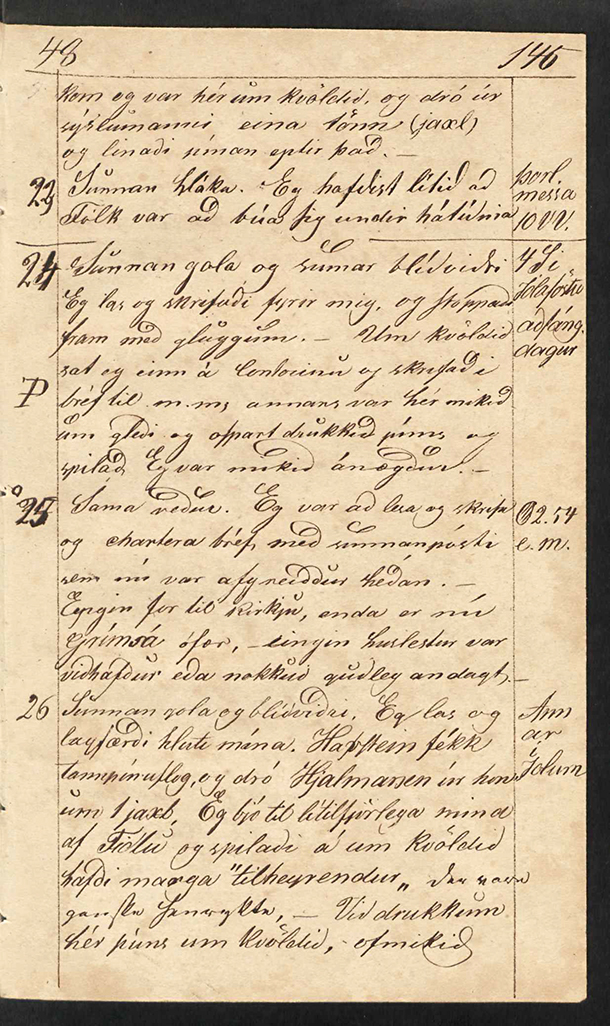 48
146
kom og var hér um kvöldið, og dró úr
sýslumanni eina tönn (jaxl)
og linaði pínan eptir það. —
23 Sunnan hláka. Eg hafdist litið að
Fólk var að búa sig undir hátídina
þorl.
messa
10 VV.
24 Sunnan gola og sumar blídviðri
Eg las og skrifaði fyrir mig, og stoppaði
fram með gluggum. — Um kvöldið
sat eg einn á Contoirinu og skrifaði
P bréf til m.m; annars var hér mikið
um gleði og ofpart drukkið púns og
spilað, Eg var mikið ánægður. —
4 Si
Jólaföstu
aðfáng.
dagur
25 Sama veður. Eg var að lesa og skrifa
og chartera bréf með sunnanpósti
sem nú var afgreiddur héðan. —
Eingin for til kirkju, enda er nú
Grímsá ófær, — eingin huslestur var
viðhafdur eða nokkuð guðleg andagt, —
2.54
e.m.
26 Sunnan gola og blídviðri, Eg las og
lagfærði hluti mína. Hafstein fékk
tannpínuflog, og dró Hjalmarsen úr hon
um 1 jaxl, Eg bjó til lítilfjörlega mind
af Fiðlu og spilaði á um kvöldið
hafði marga "tilheyrendur„ der vare
ganske henrykte, — Við drukkum
hér púns um kvöldið, ofmikið
Ann
ar
í
Jolum